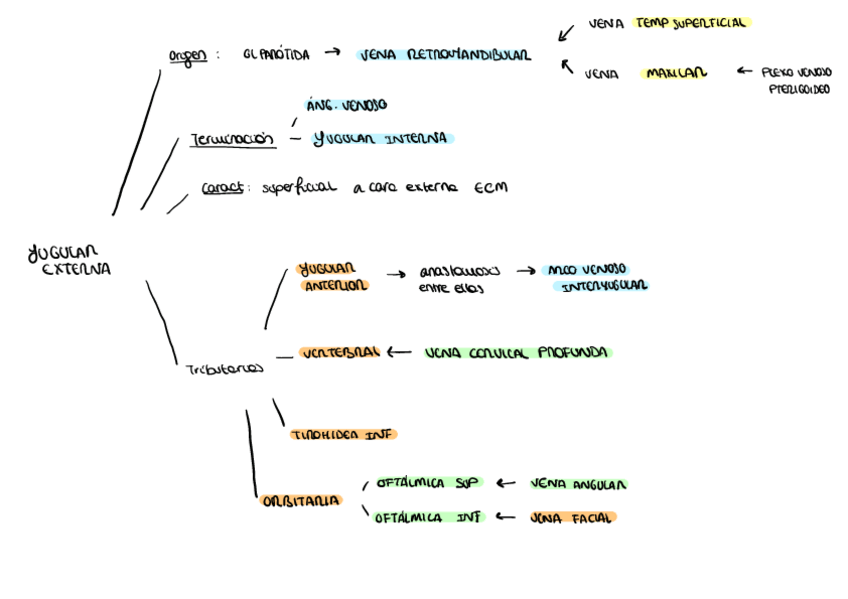 VENA TEMP SUPERFICIAL
Origen : GL PARÓTIDA → VENA RETROMANDIBULAR
VENA MAXILAR ← PLEXO VENOSO
PTERIGOIDEO
ÁNG. VENOSO
Terminación — YUGULAR INTERNA
Caract: superficial a cara externa ECM
YUGULAR
EXTERNA
YUGULAR → anastomosis → ARCO VENOSO
ANTERIOR entre ellas INTERYUGULAR
VERTEBRAL ← VENA CERVICAL PROFUNDA
Tributarias
TIROHIDEA INF
OFTÁLMICA SUP ← VENA ANGULAR
ORBITARIA
OFTÁLMICA INF ← VENA FACIAL